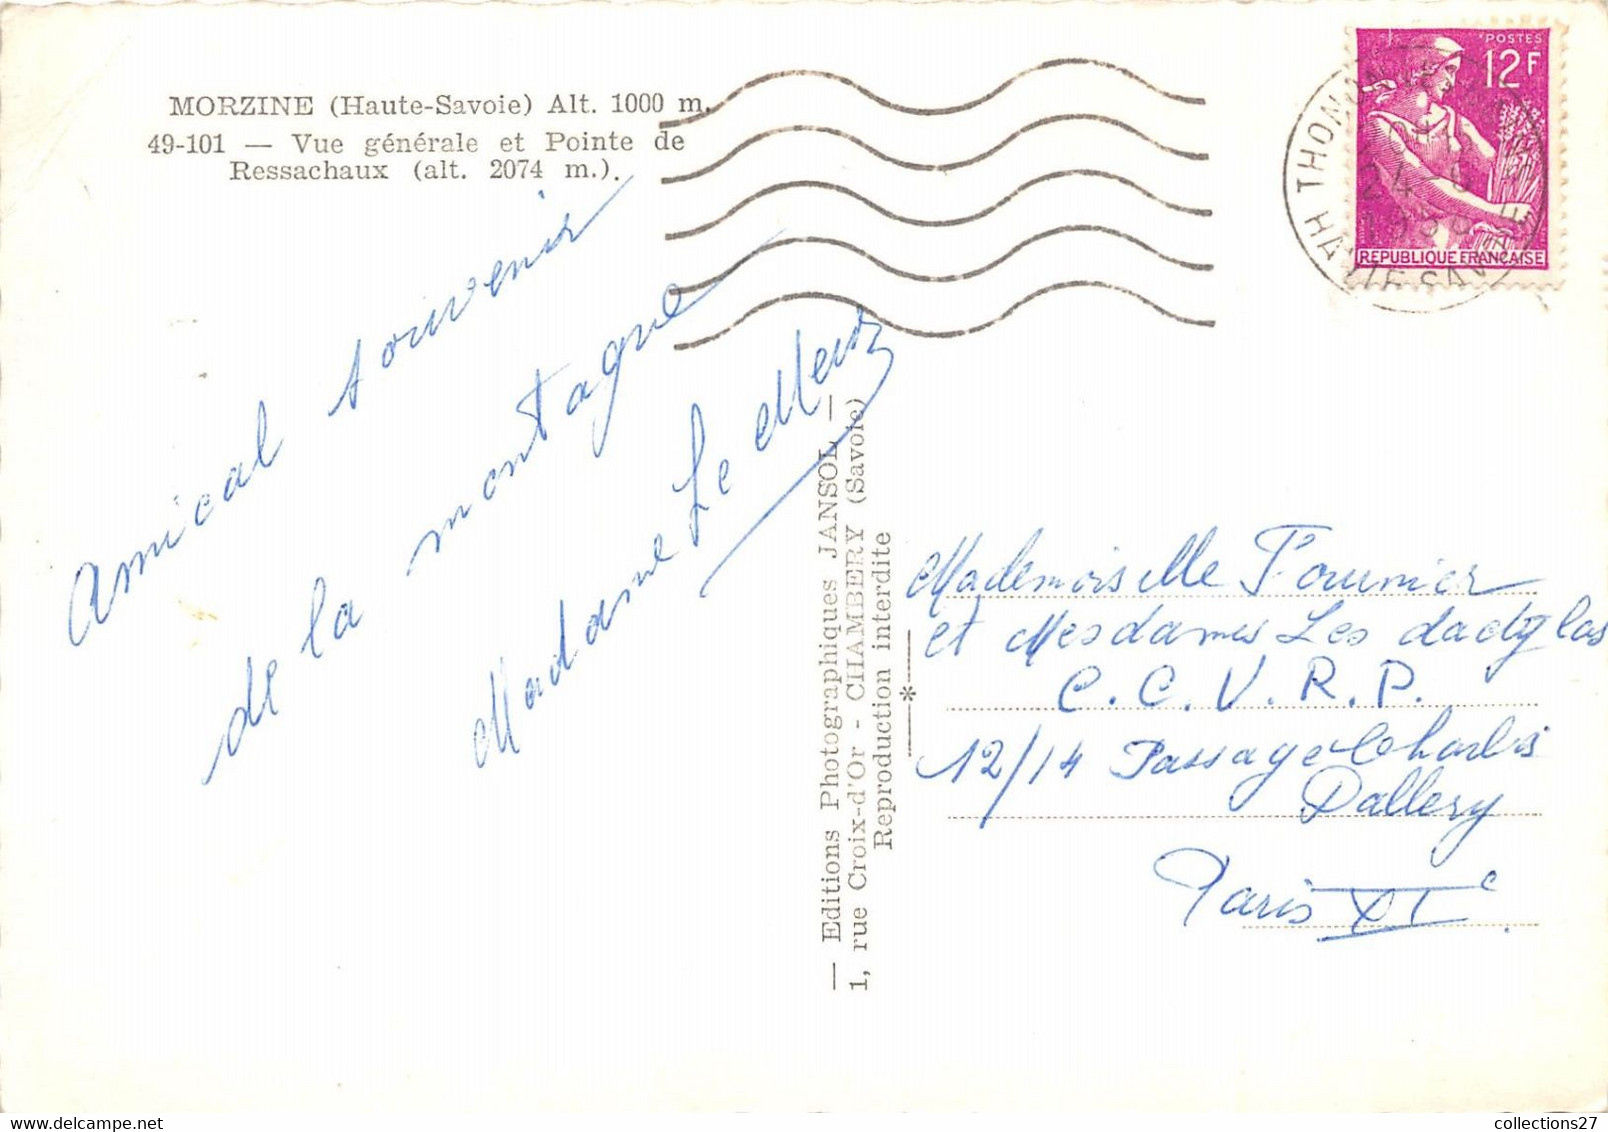 MORZINE (Haute-Savoie) Alt. 1000 m.
49-101 — Vue générale et Pointe de
Ressachaux (alt. 2074 m.).
POSTES
12F
REPUBLIQUE FRANÇAISE
THONON
HAUTE SAVOIE
24 - 9
Amical souvenir
de la montagne
Madame Le Meur
— Editions Photographiques JANSOL —
1, rue Croix-d'Or - CHAMBERY (Savoie)
Reproduction interdite
Mademoiselle Fournier
et Mesdames Les dactylos
C. C. V. R. P.
12/14 Passage Charles
Dallery
Paris XIe
collections27